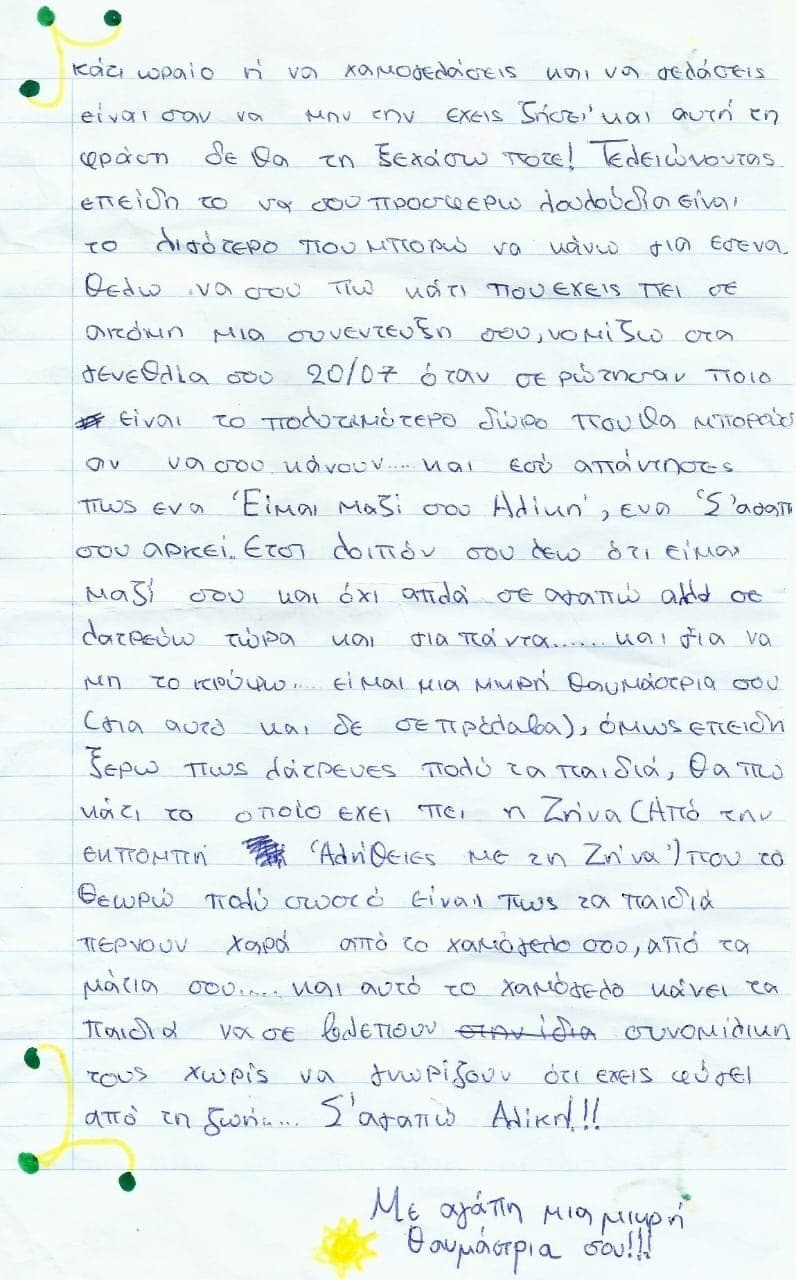 κάτι ωραίο ή να χαμογελάσεις και να γελάσεις
είναι σαν να μην την εχεις 'ζήσει' και αυτή τη
φράση δε θα τη ξεχάσω ποτε! Τελειώνοντας
επειδη το να σου προσφερω λουλούδια είναι
το λιγότερο που μπορώ να κάνω για εσενα.
Θελω να σου πω κάτι που εχεις πει σε
ακόμη μια συνεντευξη σου, νομιζω στα
γενεθλια σου 20/07 όταν σε ρώτησαν ποιο
είναι το πολυτιμότερο δώρο που θα μπορούσ
αν να σου κάνουν.... και εσύ απάντησες
πως ενα 'Είμαι μαζί σου Αλίκη', ενα 'Σ'αγαπ
σου αρκεί. Ετσι λοιπόν σου λεω ότι είμαι
μαζί σου και όχι απλά σε αγαπώ αλλα σε
λατρεύω τώρα και για πάντα...... και για να
μη το κρύψω.... είμαι μια μικρή θαυμάστρια σου
(για αυτο και δε σε πρόλαβα), όμως επειδη
ξερω πως λάτρευες πολύ τα παιδιά, θα πω
κάτι το οποίο εχει πει η Ζήνα (Από την
εκπομπή 'Αλήθειες με τη Ζήνα') που το
θεωρώ πολύ σωστό είναι πως τα παιδιά
περνουν χαρά από το χαμόγελο σου, από τα
μάτια σου..... και αυτό το χαμόγελο κάνει τα
παιδιά να σε βλεπουν στην ίδια συνομιλικη
τους χωρίς να γνωρίζουν ότι εχεις φύγει
από τη ζωή.... Σ'αγαπώ Αλίκη!!!
Με αγάπη μια μικρή
θαυμάστρια σου!!!